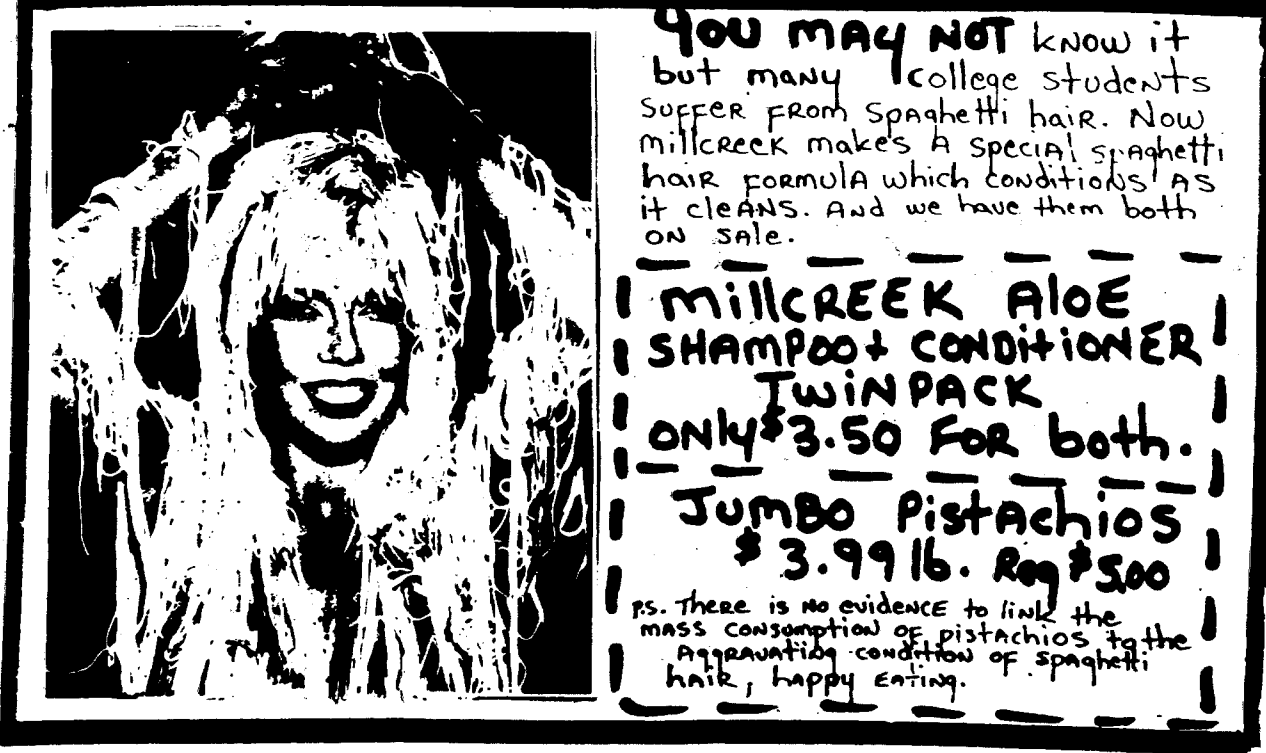 You may NOT know it
but many college students
suffer from spaghetti hair. Now
millcreek makes a special spaghetti
hair formula which conditions as
it cleans. And we have them both
on sale.
millcreek Aloe
Shampoo + Conditioner
Twin Pack
only $3.50 for both.
Jumbo Pistachios
$3.99 lb. Reg $5.00
P.S. There is no evidence to link the
mass consumption of pistachios to the
aggravating condition of spaghetti
hair, happy eating.